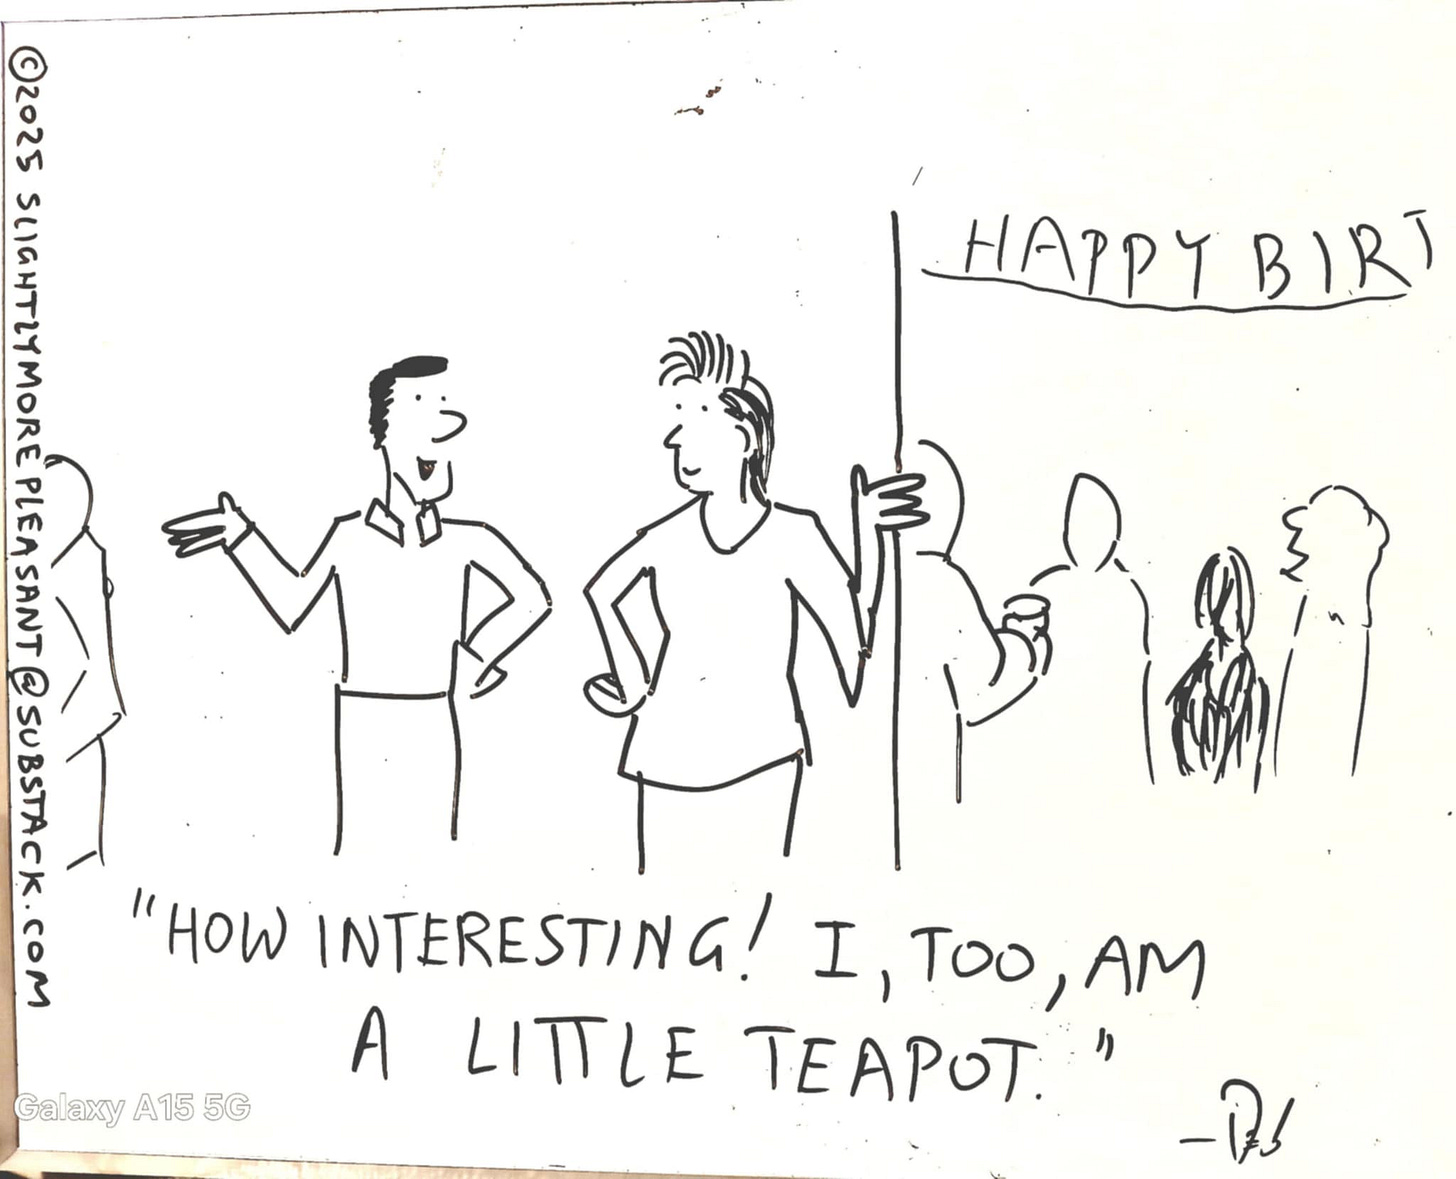 ©2025 SLIGHTLYMOREPLEASANT@SUBSTACK.COM
HAPPY BIRT
"HOW INTERESTING! I, TOO, AM
A LITTLE TEAPOT."
Galaxy A15 5G